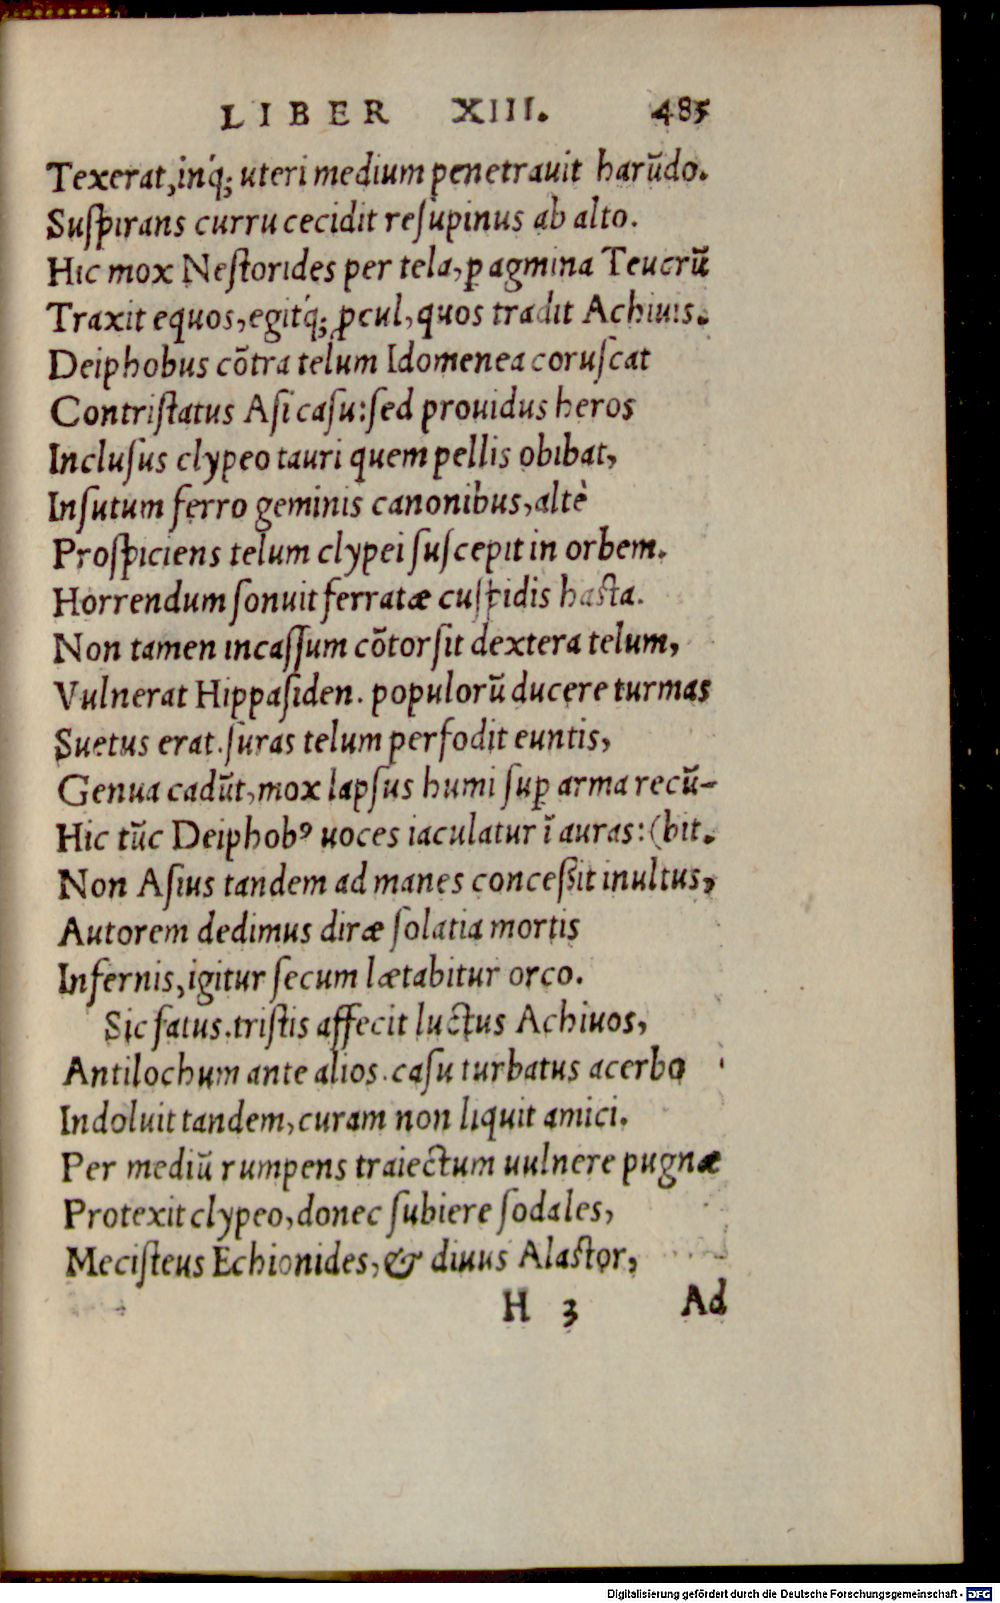 LIBER XIII. 485
Texerat, inq́; uteri medium penetrauit harũdo.
Suſpirans curru cecidit reſupinus ab alto.
Hic mox Neſtorides per tela, ꝑ agmina Teucrũ
Traxit equos, egitq́; ꝓcul, quos tradit Achiuis.
Deiphobus cõtra telum Idomenea coruſcat
Contriſtatus Aſi caſu: ſed prouidus heros
Incluſus clypeo tauri quem pellis obibat,
Inſutum ferro geminis canonibus, altè
Proſpiciens telum clypei ſuſcepit in orbem.
Horrendum ſonuit ferratæ cuſpidis haſta.
Non tamen incaſſum cõtorſit dextera telum,
Vulnerat Hippaſiden. populorũ ducere turmas
Suetus erat. ſuras telum perfodit euntis,
Genua cadũt, mox lapſus humi ſuꝑ arma recũ-
Hic tũc Deiphobꝰ uoces iaculatur ĩ auras: (bit.
Non Aſius tandem ad manes conceßit inultus,
Autorem dedimus diræ ſolatia mortis
Infernis, igitur ſecum lætabitur orco.
Sic fatus. triſtis affecit luctus Achiuos,
Antilochum ante alios. caſu turbatus acerbo
Indoluit tandem, curam non liquit amici.
Per mediũ rumpens traiectum uulnere pugnæ
Protexit clypeo, donec ſubiere ſodales,
Meciſteus Echionides, & diuus Alaſtor,
H 3 Ad
Digitalisierung gefördert durch die Deutsche Forschungsgemeinschaft - DFG